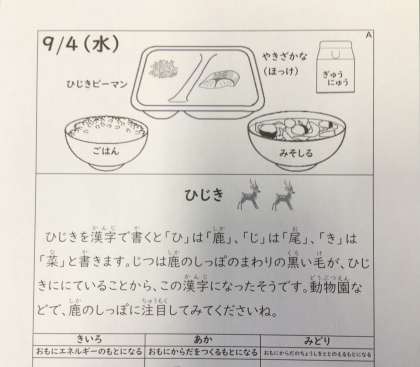 9/4(水)
A
ひじきピーマン
やきざかな
(ほっけ)
ぎゅう
にゅう
ごはん
みそしる
ひじき
ひじきを漢字で書くと「ひ」は「鹿」、「じ」は「尾」、「き」は
「菜」と書きます。じつは鹿のしっぽのまわりの黒い毛が、ひじ
きににていることから、この漢字になったそうです。動物園な
どで、鹿のしっぽに注目してみてくださいね。
きいろ あか みどり
おもにエネルギーのもとになる おもにからだをつくるもとになる おもにからだのちょうしをととのえるもとになる